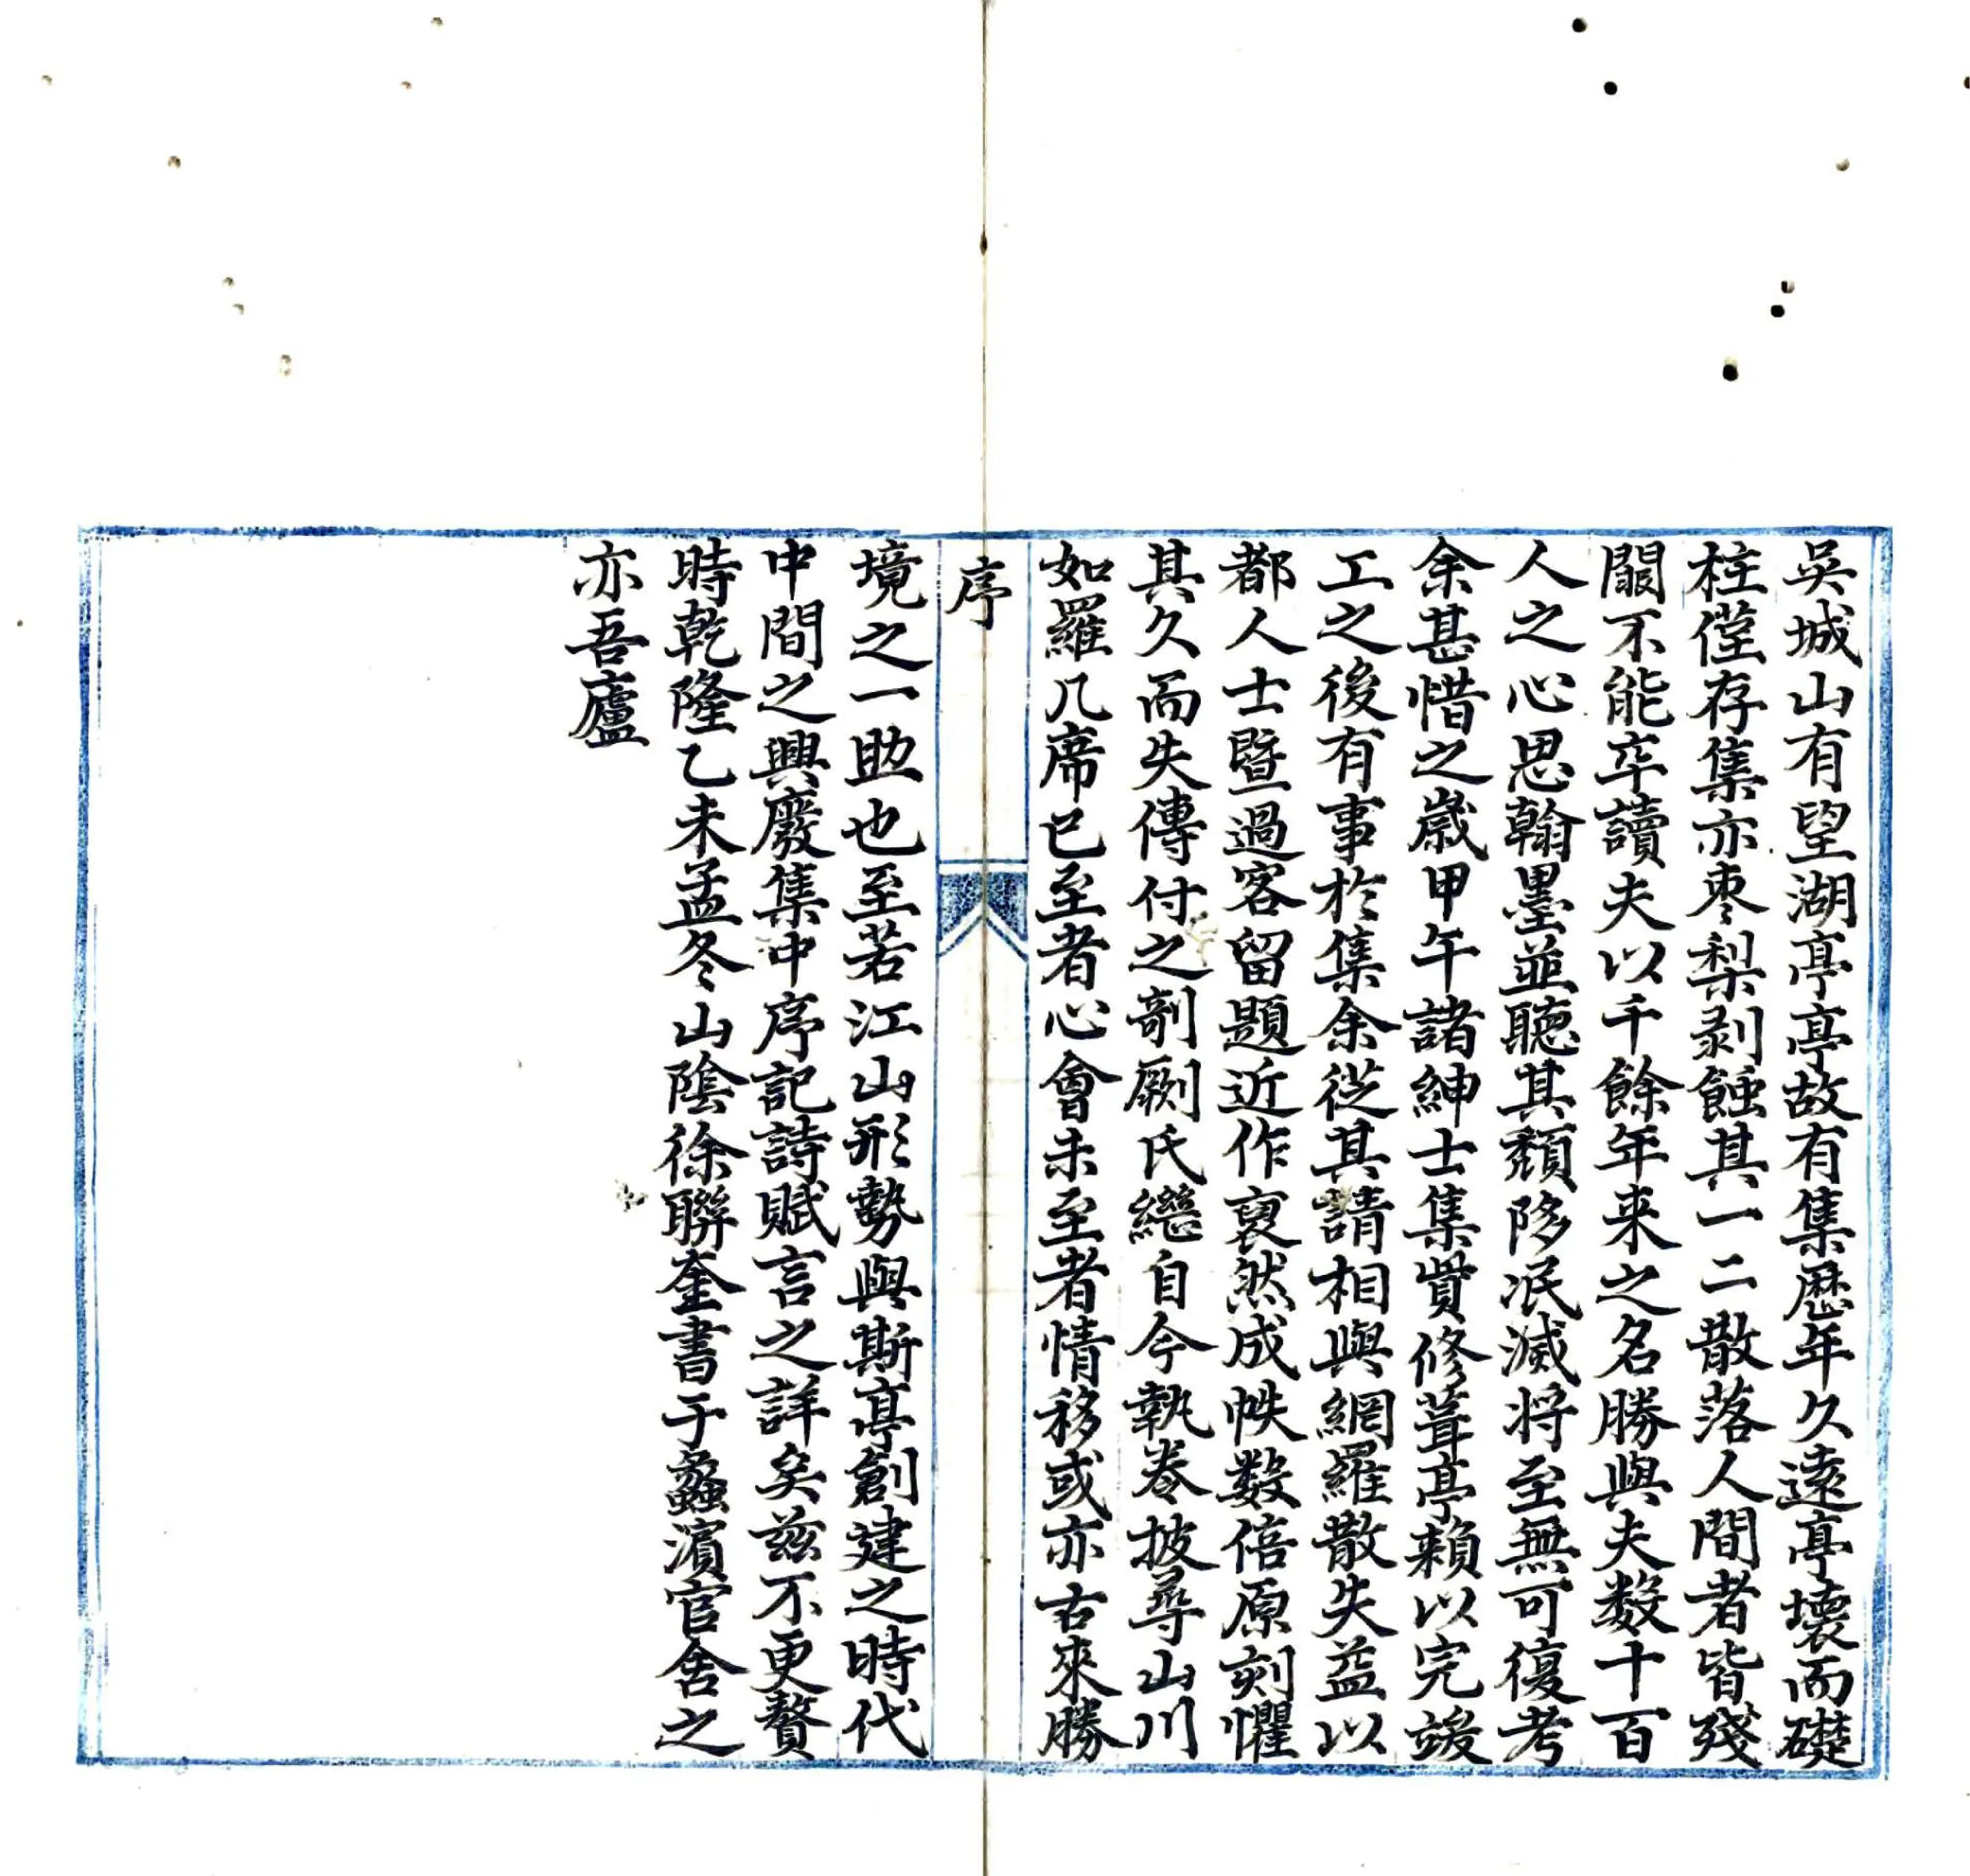 吳城山有望湖亭亭故有集歷年久遠亭壞而礎
柱僅存集亦枣梨剥蝕其一二散落人間者皆殘
闕不能卒讀夫以千餘年来之名勝與夫数十百
人之心思翰墨並聽其頹陊泯滅将至無可復考
余甚惜之歲甲午諸紳士集貲修葺亭頼以完竣
工之後有事於集余從其請相與網羅散失益以
都人士暨過客留題近作裒然成帙数倍原刻懼
其久而失傳付之剞劂氏繼自今執卷披尋山川
如羅几席已至者心會未至者情移或亦古來勝
序
境之一助也至若江山形勢與斯亭創建之時代
中間之興廢集中序記詩賦言之詳矣兹不更贅
時乾隆乙未孟冬山陰徐聯奎書于蠡濵官舍之
亦吾廬